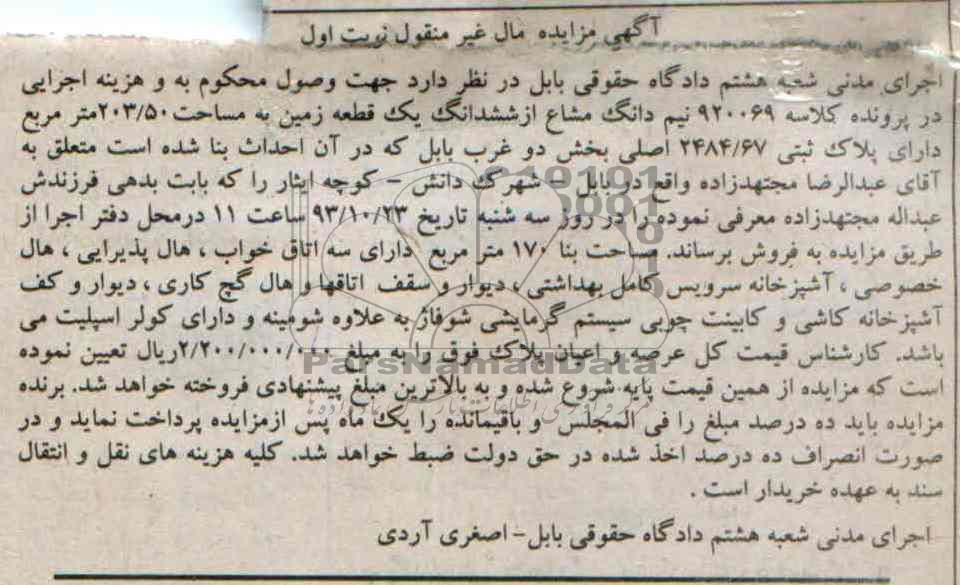 آگهی مزایده مال غیر منقول نوبت اول
اجرای مدنی شعبه هشتم دادگاه حقوقی بابل در نظر دارد جهت وصول محکوم به و هزینه اجرایی
در پرونده کلاسه ۹۲۰۰۶۹ نیم دانگ مشاع ازششدانگ یک قطعه زمین به مساحت۲۰۳/۵۰متر مربع
دارای پلاک ثبتی ۲۴۸۴/۶۷ اصلی بخش دو غرب بابل که در آن احداث بنا شده است متعلق به
آقای عبدالرضا مجتهدزاده واقع در بابل - شهرک دانش - کوچه ایثار را که بابت بدهی فرزندش
عبداله مجتهدزاده معرفی نموده را در روز سه شنبه تاریخ ۹۳/۱۰/۲۳ ساعت ۱۱ درمحل دفتر اجرا از
طریق مزایده به فروش برساند. مساحت بنا ۱۷۰ متر مربع دارای سه اتاق خواب ، هال پذیرایی ، هال
خصوصی ، آشپزخانه سرویس کامل بهداشتی ، دیوار و سقف اتاقها و هال گچ کاری ، دیوار و کف
آشپزخانه کاشی و کابینت چوبی سیستم گرمایشی شوفاژ به علاوه شومینه و دارای کولر اسپلیت می
باشد. کارشناس قیمت کل عرصه و اعیان پلاک فوق را به مبلغ ۲/۲۰۰/۰۰۰/۰۰۰ریال تعیین نموده
ParsNamadData
است که مزایده از همین قیمت پایه شروع شده و به بالاترین مبلغ پیشنهادی فروخته خواهد شد. برنده
مزایده باید ده درصد مبلغ را فی المجلس و باقیمانده را یک ماه پس ازمزایده پرداخت نماید و در
صورت انصراف ده درصد اخذ شده در حق دولت ضبط خواهد شد. کلیه هزینه های نقل و انتقال
سند به عهده خریدار است .
اجرای مدنی شعبه هشتم دادگاه حقوقی بابل- اصغری آردی